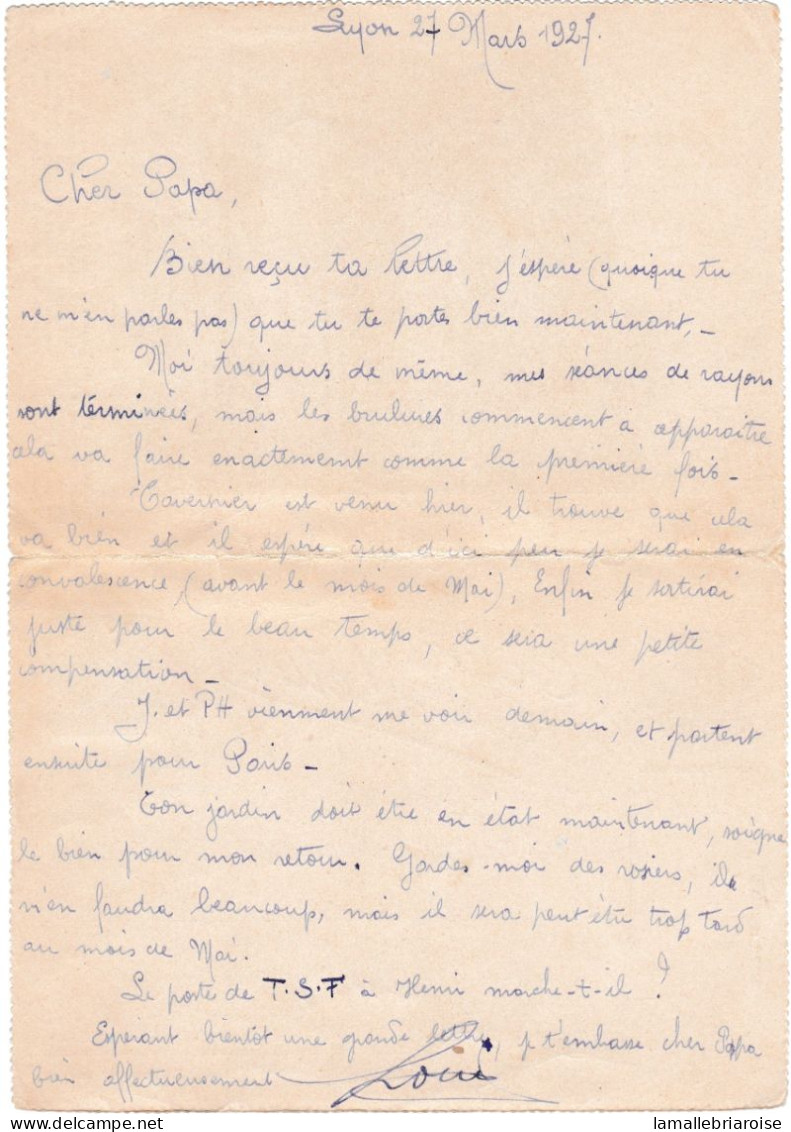 Lyon 27 Mars 1927.
Cher Papa,
Bien reçu ta lettre, j'espère (quoique tu
ne m'en parles pas) que tu te portes bien maintenant. -
Moi toujours de même, mes séances de rayons
sont terminées, mais les brulures commencent à apparaitre
cela va faire exactement comme la première fois -
Tavernier est venu hier, il trouve que cela
va bien et il espère que d'ici peu je serai en
convalescence (avant le mois de Mai), Enfin je sortirai
juste pour le beau temps, ce sera une petite
compensation -
J. et PH viennent me voir demain, et partent
ensuite pour Paris -
Ton jardin doit être en état maintenant, soigne
le bien pour mon retour. Gardes-moi des rosiers, il
m'en faudra beaucoup, mais il sera peut être trop tard
au mois de Mai.
Le poste de T.S.F à Henri marche-t-il ?
Espérant bientôt une grande lettre, je t'embasse cher Papa
bien affectueusement
Louis
www.delcampe.net
lamallebriaroise